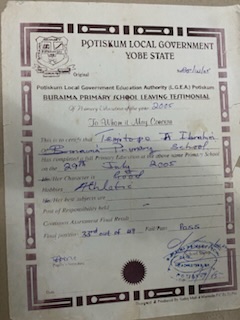 POTISKUM LOCAL GOVERNMENT
YOBE STATE
Original
Potiskum Local Government Education Authority (L.G.E.A) Potiskum
BURAIMA PRIMARY SCHOOL LEAVING TESTIMONIAL
2005
To Whom it May Concern
This is to certify that Temitope A Ibrahim
Buraima Primary School
has completed a full Primary Education at the above name Primary School
on the 29th July 2005
his/her Character is Good
Hobbies Athletic
His/Her Best subjects are
Post of Responsibilities held
Continuous Assessment Final Result
Final position 33rd out of 48 Fail/Pass Pass